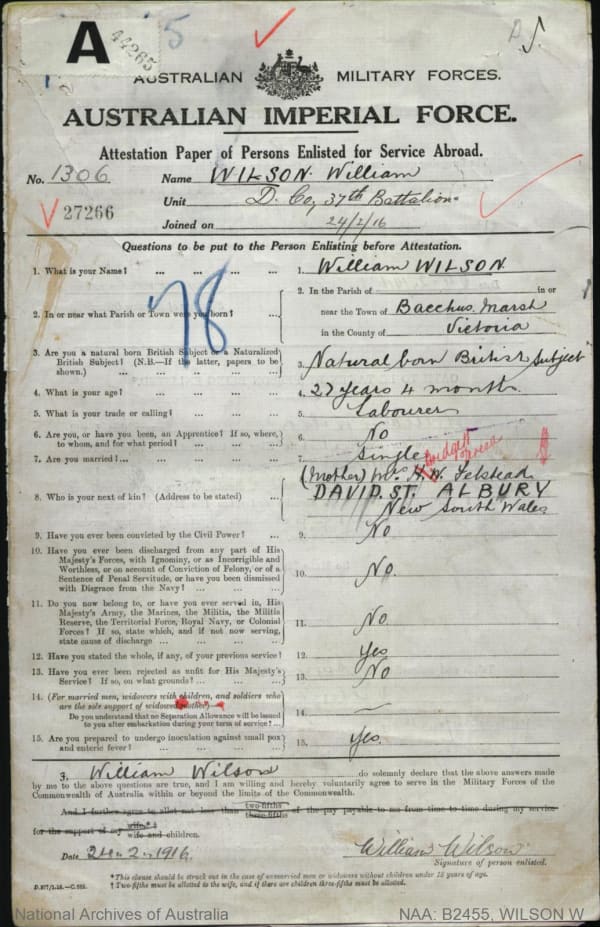 A
44265
5
AUSTRALIAN MILITARY FORCES.
AUSTRALIAN IMPERIAL FORCE.
Attestation Paper of Persons Enlisted for Service Abroad.
No. 1306 Name WILSON William
27266 Unit D. Co, 37th Battalion
Joined on 24/2/16
Questions to be put to the Person Enlisting before Attestation.
1. What is your Name? ... ... ... ... 1. William WILSON
78
2. In or near what Parish or Town were you born? ...
2. In the Parish of in or
near the Town of Bacchus Marsh
in the County of Victoria
3. Are you a natural born British Subject or a Naturalized British Subject? (N.B.—If the latter, papers to be shown.) ... ... ... ... 3. Natural born British Subject
4. What is your age? ... ... ... ... 4. 27 years 4 month
5. What is your trade or calling? ... ... ... 5. Labourer
6. Are you, or have you been, an Apprentice? If so, where, to whom, and for what period? ... ... ... 6. No
7. Are you married?... ... ... ... ... 7. Single
Bridgett
8. Who is your next of kin? (Address to be stated) ...
(Mother) Mrs H. W. Felstead
DAVID. ST. ALBURY
New South Wales
9. Have you ever been convicted by the Civil Power? ... 9. No
10. Have you ever been discharged from any part of His Majesty's Forces, with Ignominy, or as Incorrigible and Worthless, or on account of Conviction of Felony, or of a Sentence of Penal Servitude, or have you been dismissed with Disgrace from the Navy? ... ... ... 10. No.
11. Do you now belong to, or have you ever served in, His Majesty's Army, the Marines, the Militia, the Militia Reserve, the Territorial Force, Royal Navy, or Colonial Forces? If so, state which, and if not now serving, state cause of discharge ... ... ... ... 11. No
12. Have you stated the whole, if any, of your previous service? 12. Yes
13. Have you ever been rejected as unfit for His Majesty's Service? If so, on what grounds? ... ... ... 13. No
14. (For married men, widowers with children, and soldiers who are the sole support of widowed mother)—
Do you understand that no Separation Allowance will be issued to you after embarkation during your term of service? ... 14.
15. Are you prepared to undergo inoculation against small pox and enteric fever? ... ... ... ... 15. Yes.
I, William Wilson do solemnly declare that the above answers made
by me to the above questions are true, and I am willing and hereby voluntarily agree to serve in the Military Forces of the
Commonwealth of Australia within or beyond the limits of the Commonwealth.
And I further agree to allot not less than two-fifths three-fifths of the pay payable to me from time to time during my service
for the support of my wife* † wife and children.
Date 2. 1916. William Wilson
Signature of person enlisted.
*This clause should be struck out in the case of unmarried men or widowers without children under 18 years of age.
† Two-fifths must be allotted to the wife, and if there are children three-fifths must be allotted.
National Archives of Australia NAA: B2455, WILSON W